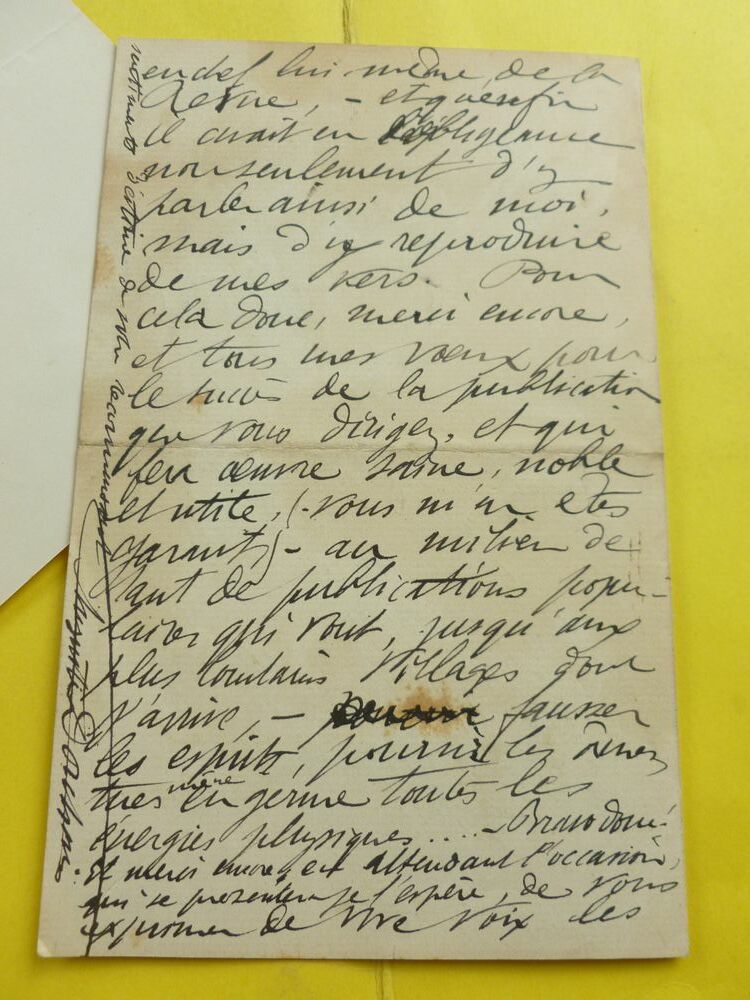 en chef lui-même, de la
Revue, — et qu'enfin
il avait eu l'obligeance
non seulement d'y
parler ainsi de moi,
mais d'y reproduire
de mes vers. Pour
cela donc, merci encore,
et tous mes vœux pour
le succès de la publication
que vous dirigez, et qui
fera œuvre saine, noble
et utile, (- vous m'en êtes
garant,) - au milieu de
tant de publications popu-
laires qui vont, jusqu'aux
plus lointains villages dont
j'arrive, — fausser
les esprits, pourrir les âmes,
tuer même en germe toutes les
énergies physiques.... — Bravo donc!
Et merci encore, en attendant l'occasion,
qui se présentera je l'espère, de vous
exprimer de vive voix les
sentiments d'estime de votre reconnaissant